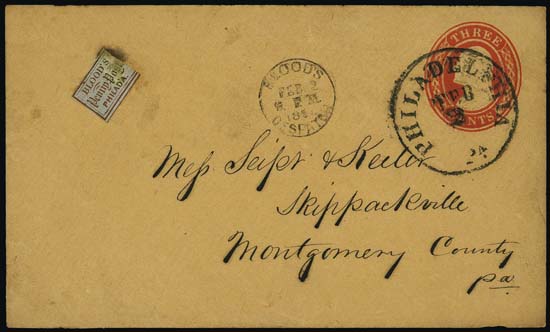 BLOOD'S
Penny Post
PHILADA.
BLOOD'S
FEB 2
DESPATCH
THREE
CENTS
PHILADELPHIA
FEB
2
PA
Mess Seipt & Keeler
Skippackville
Montgomery County
pa